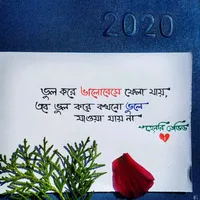 2020
ভুল করে ভালোবেসে ফেলা যায়,
তবে ভুল করে কখনো ভুলে
যাওয়া যায় না